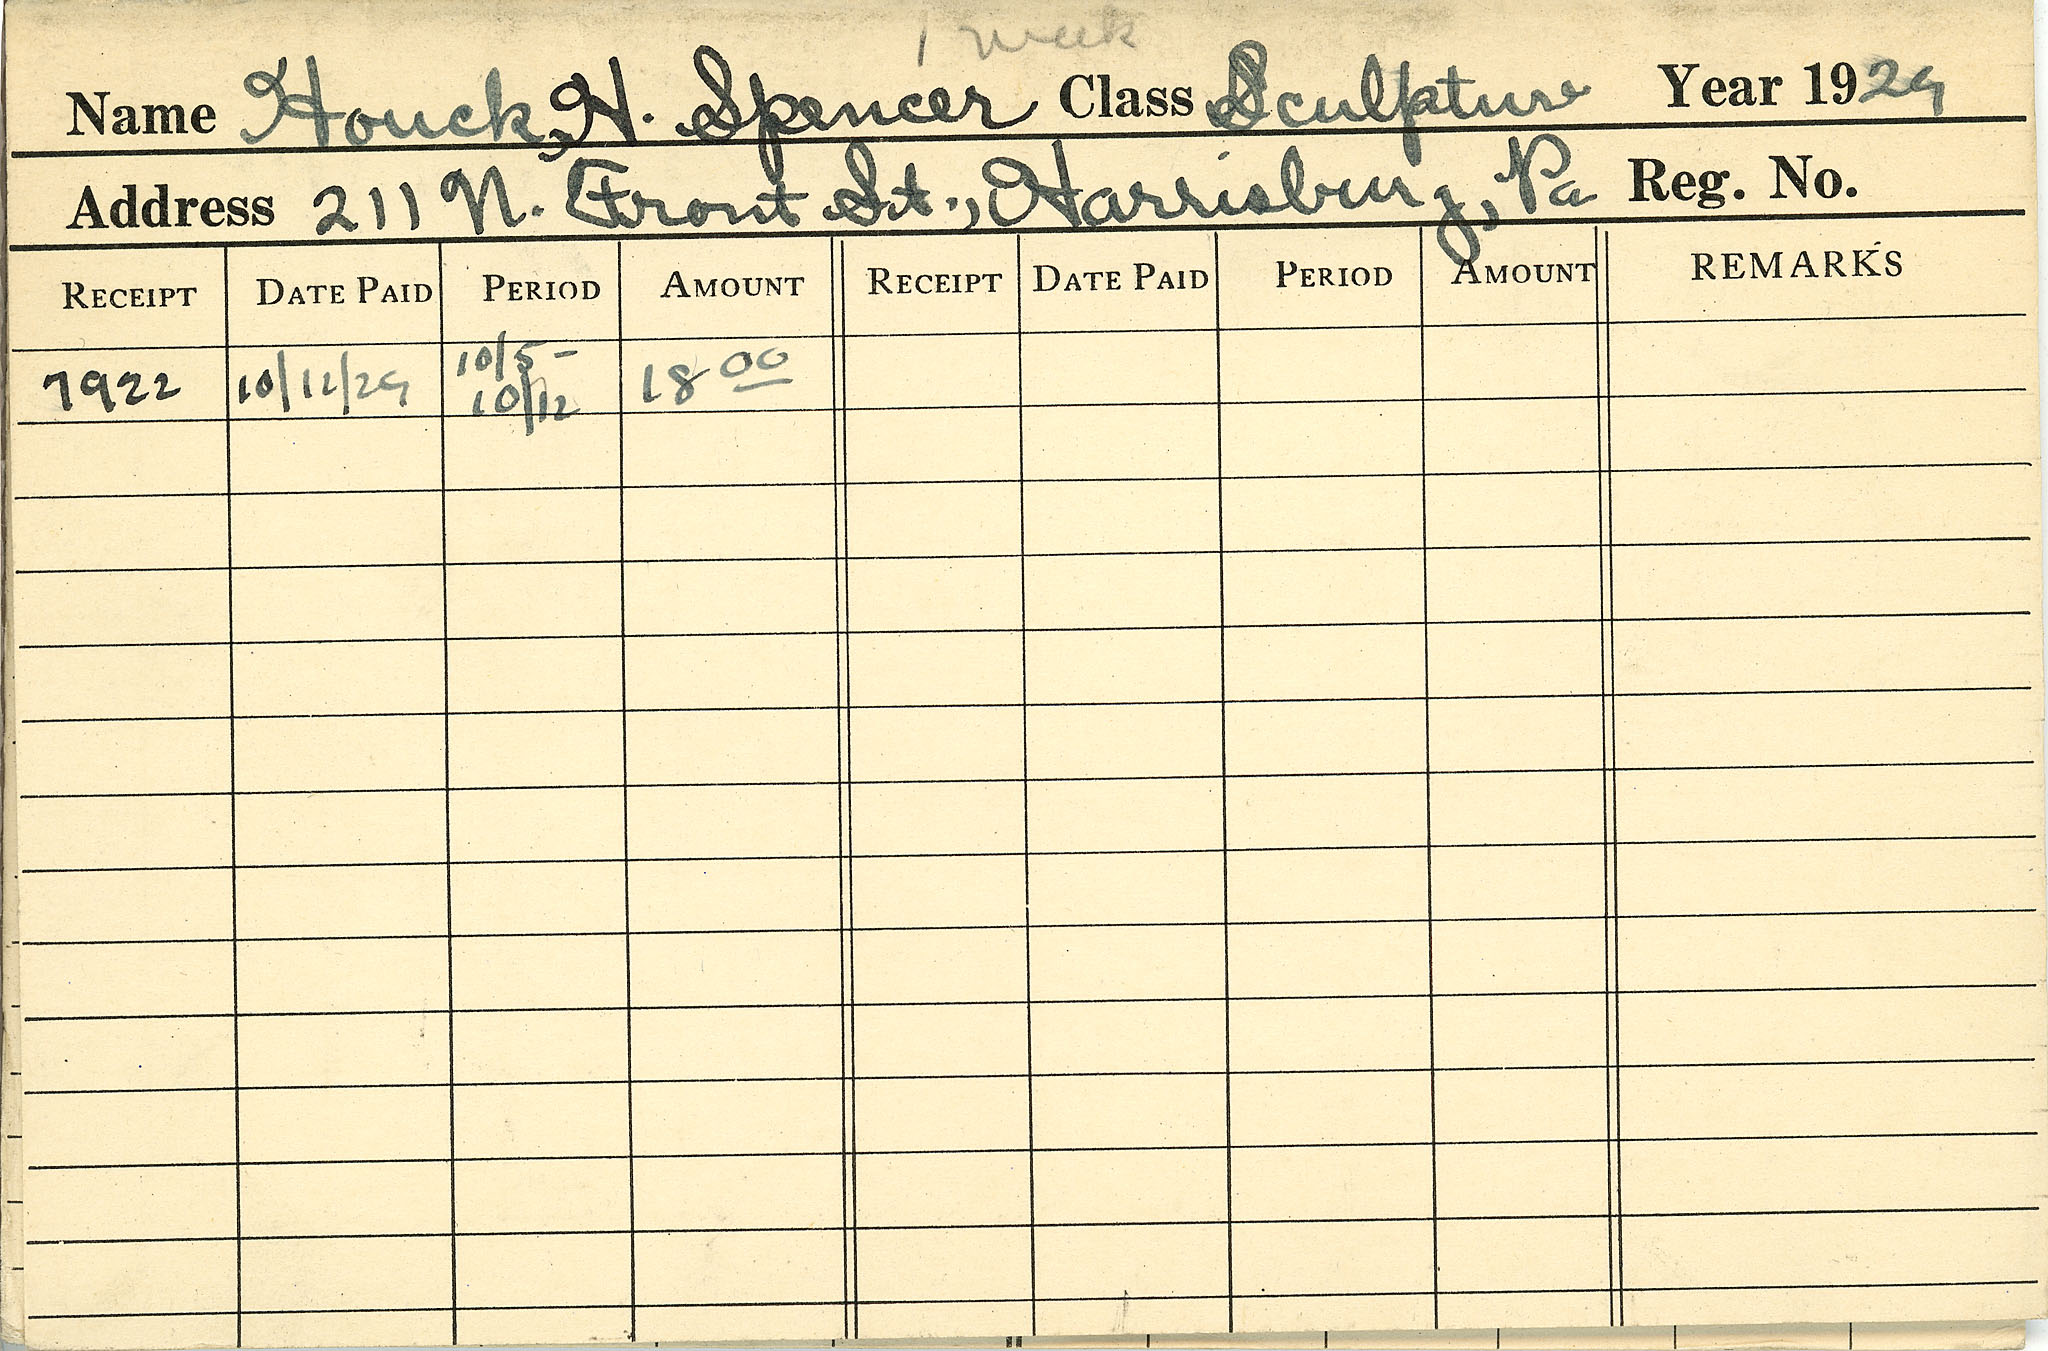 1 week
Name Houck, H. Spencer Class Sculpture Year 1929
Address 211 N. Front St., Harrisburg, Pa Reg. No.
RECEIPT DATE PAID PERIOD AMOUNT RECEIPT DATE PAID PERIOD AMOUNT REMARKS
7922 10/12/29 10/5- 18 00
10/12